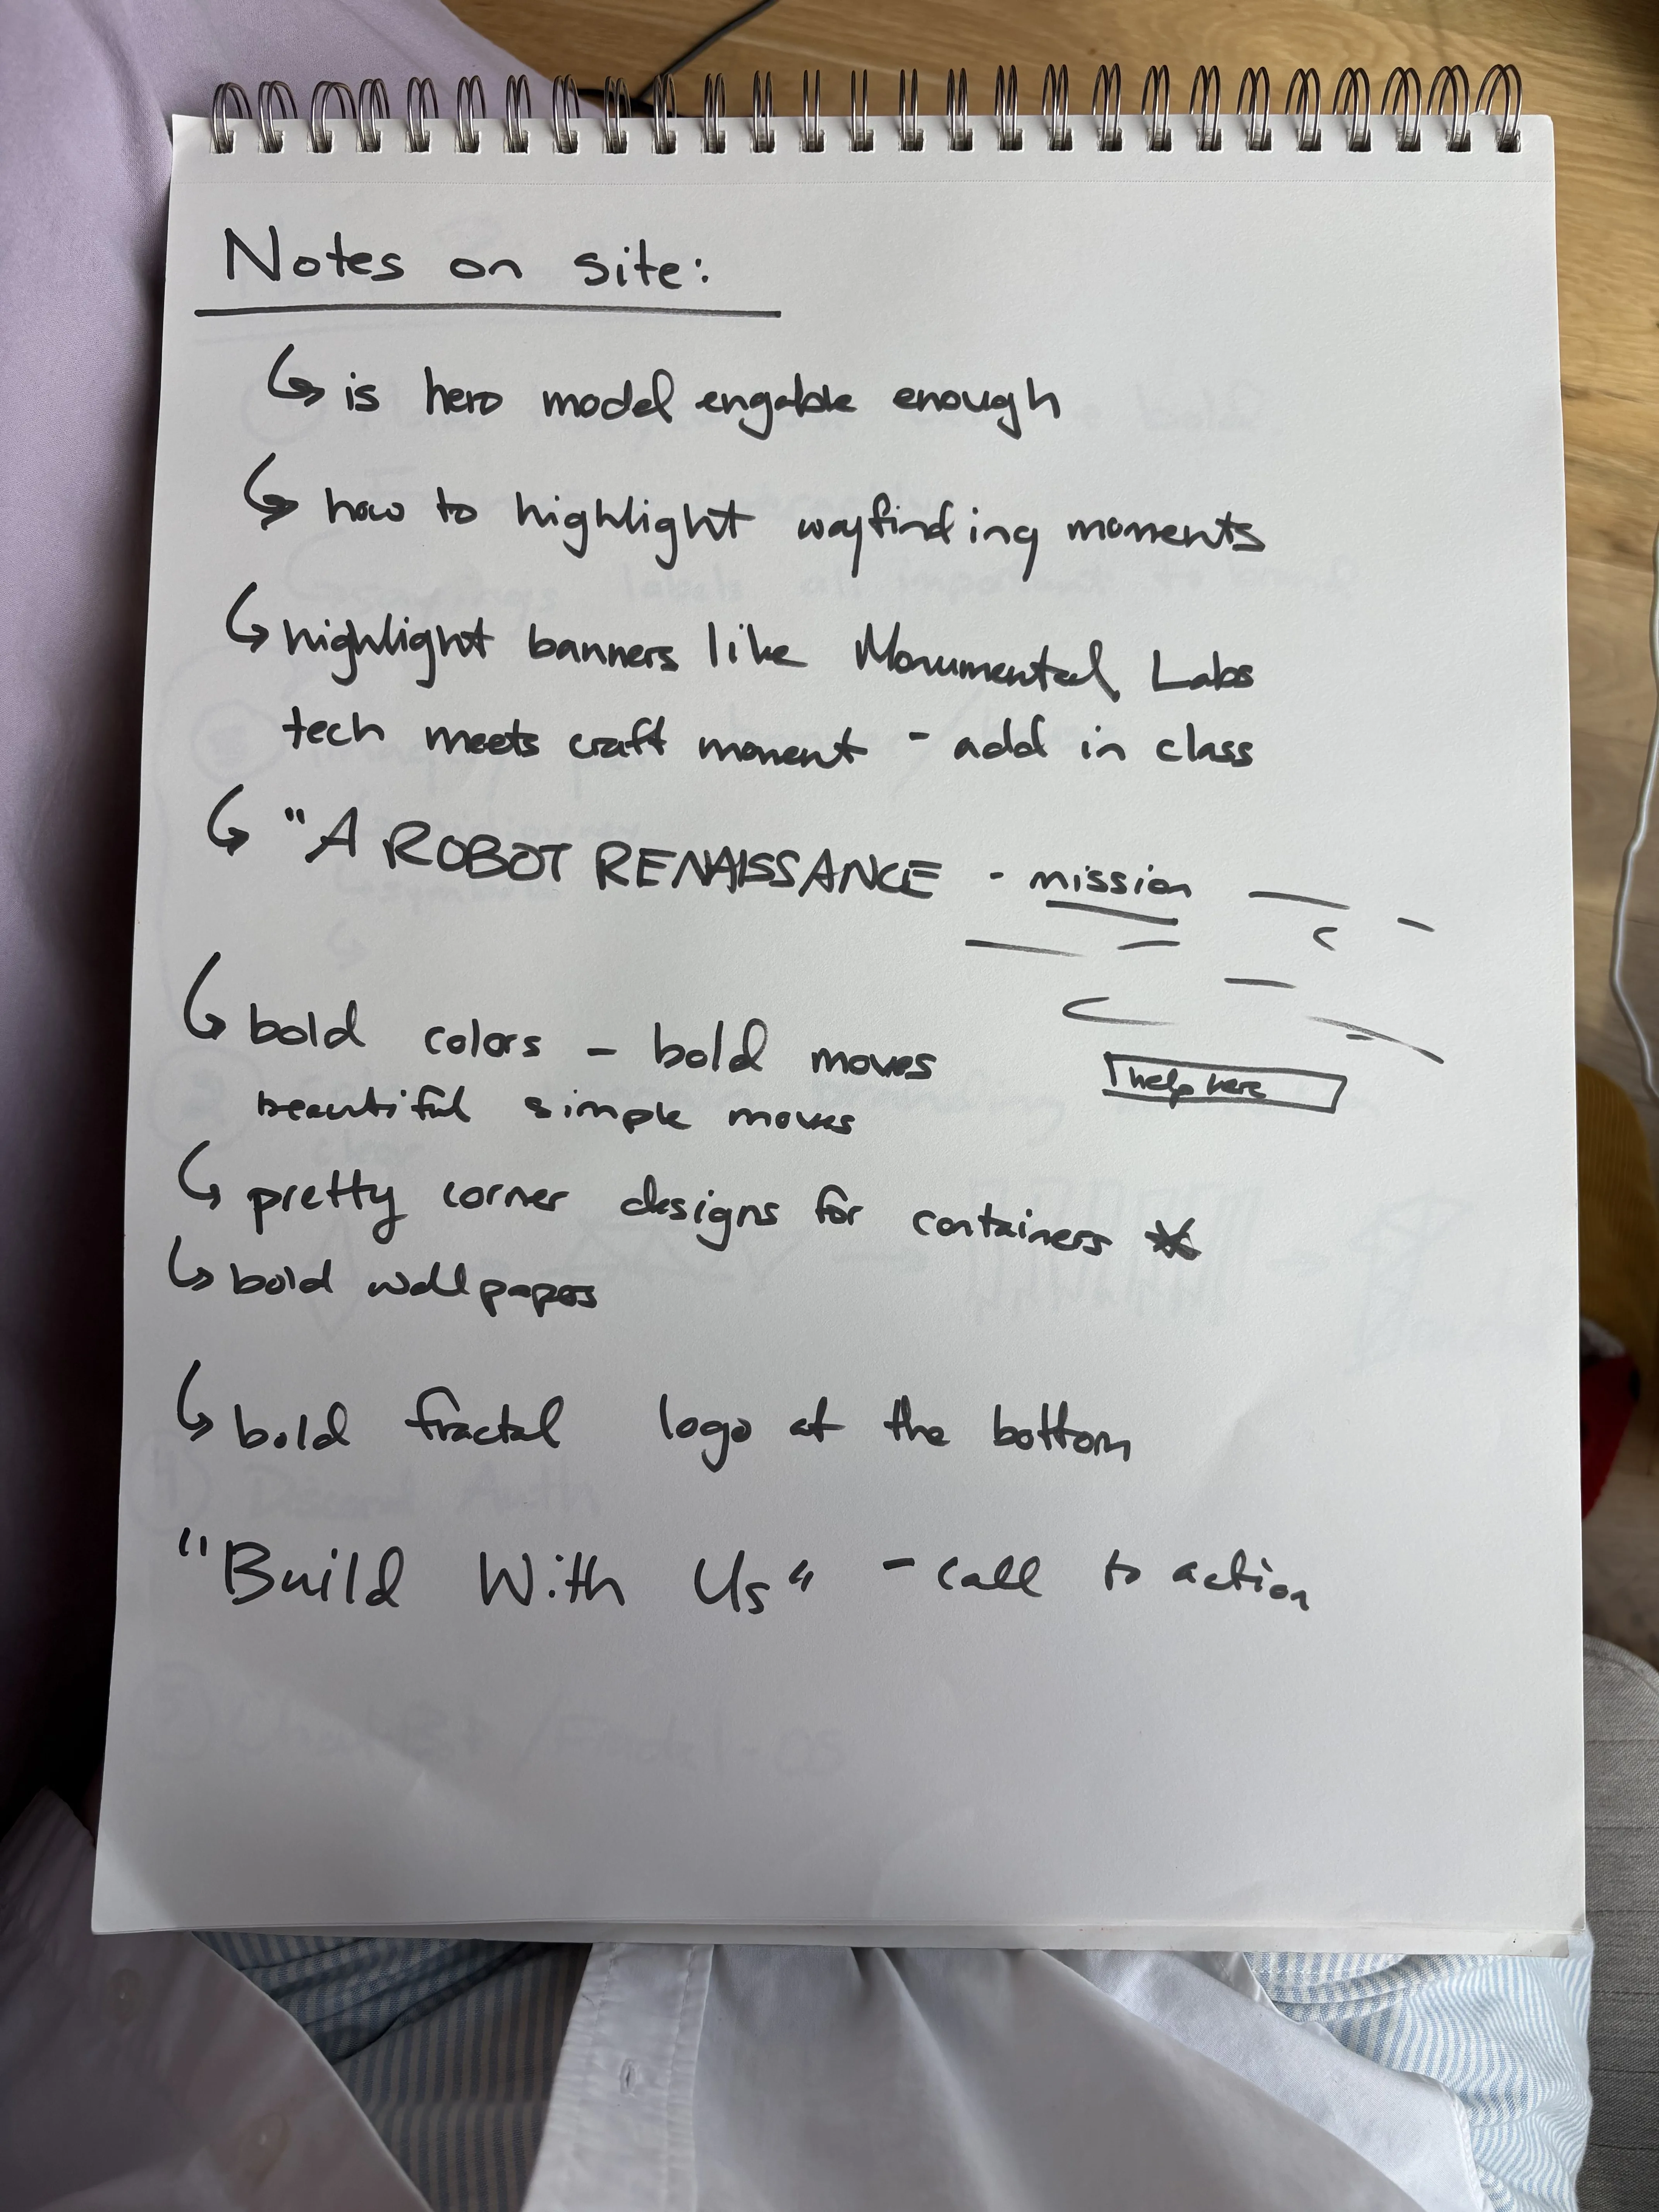 Notes on site:
is hero model engable enough
how to highlight wayfinding moments
highlight banners like Monumental Labs
tech meets craft moment - add in class
"A ROBOT RENAISSANCE - mission
bold colors - bold moves
help here
beautiful simple moves
pretty corner designs for containers
bold wallpapers
bold fractal logo at the bottom
"Build With Us" - call to action